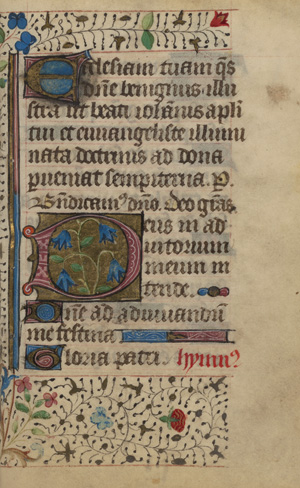 Ecclesiam tuam qs
dne benignus illu
stra ut beati iohannis apli
tui et euuangeliste illumi
nata doctrinis ad dona
perueniat sempiterna. P.
Benedicam9 dno. Deo gras
Deus in ad
iutorium
meum in
tende.
Dne ad adiuuandum
me festina
Gloria patri. hymn9